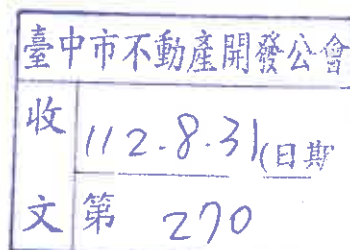 臺中市不動產開發公會
收 112.8.31(日期
文 第 270